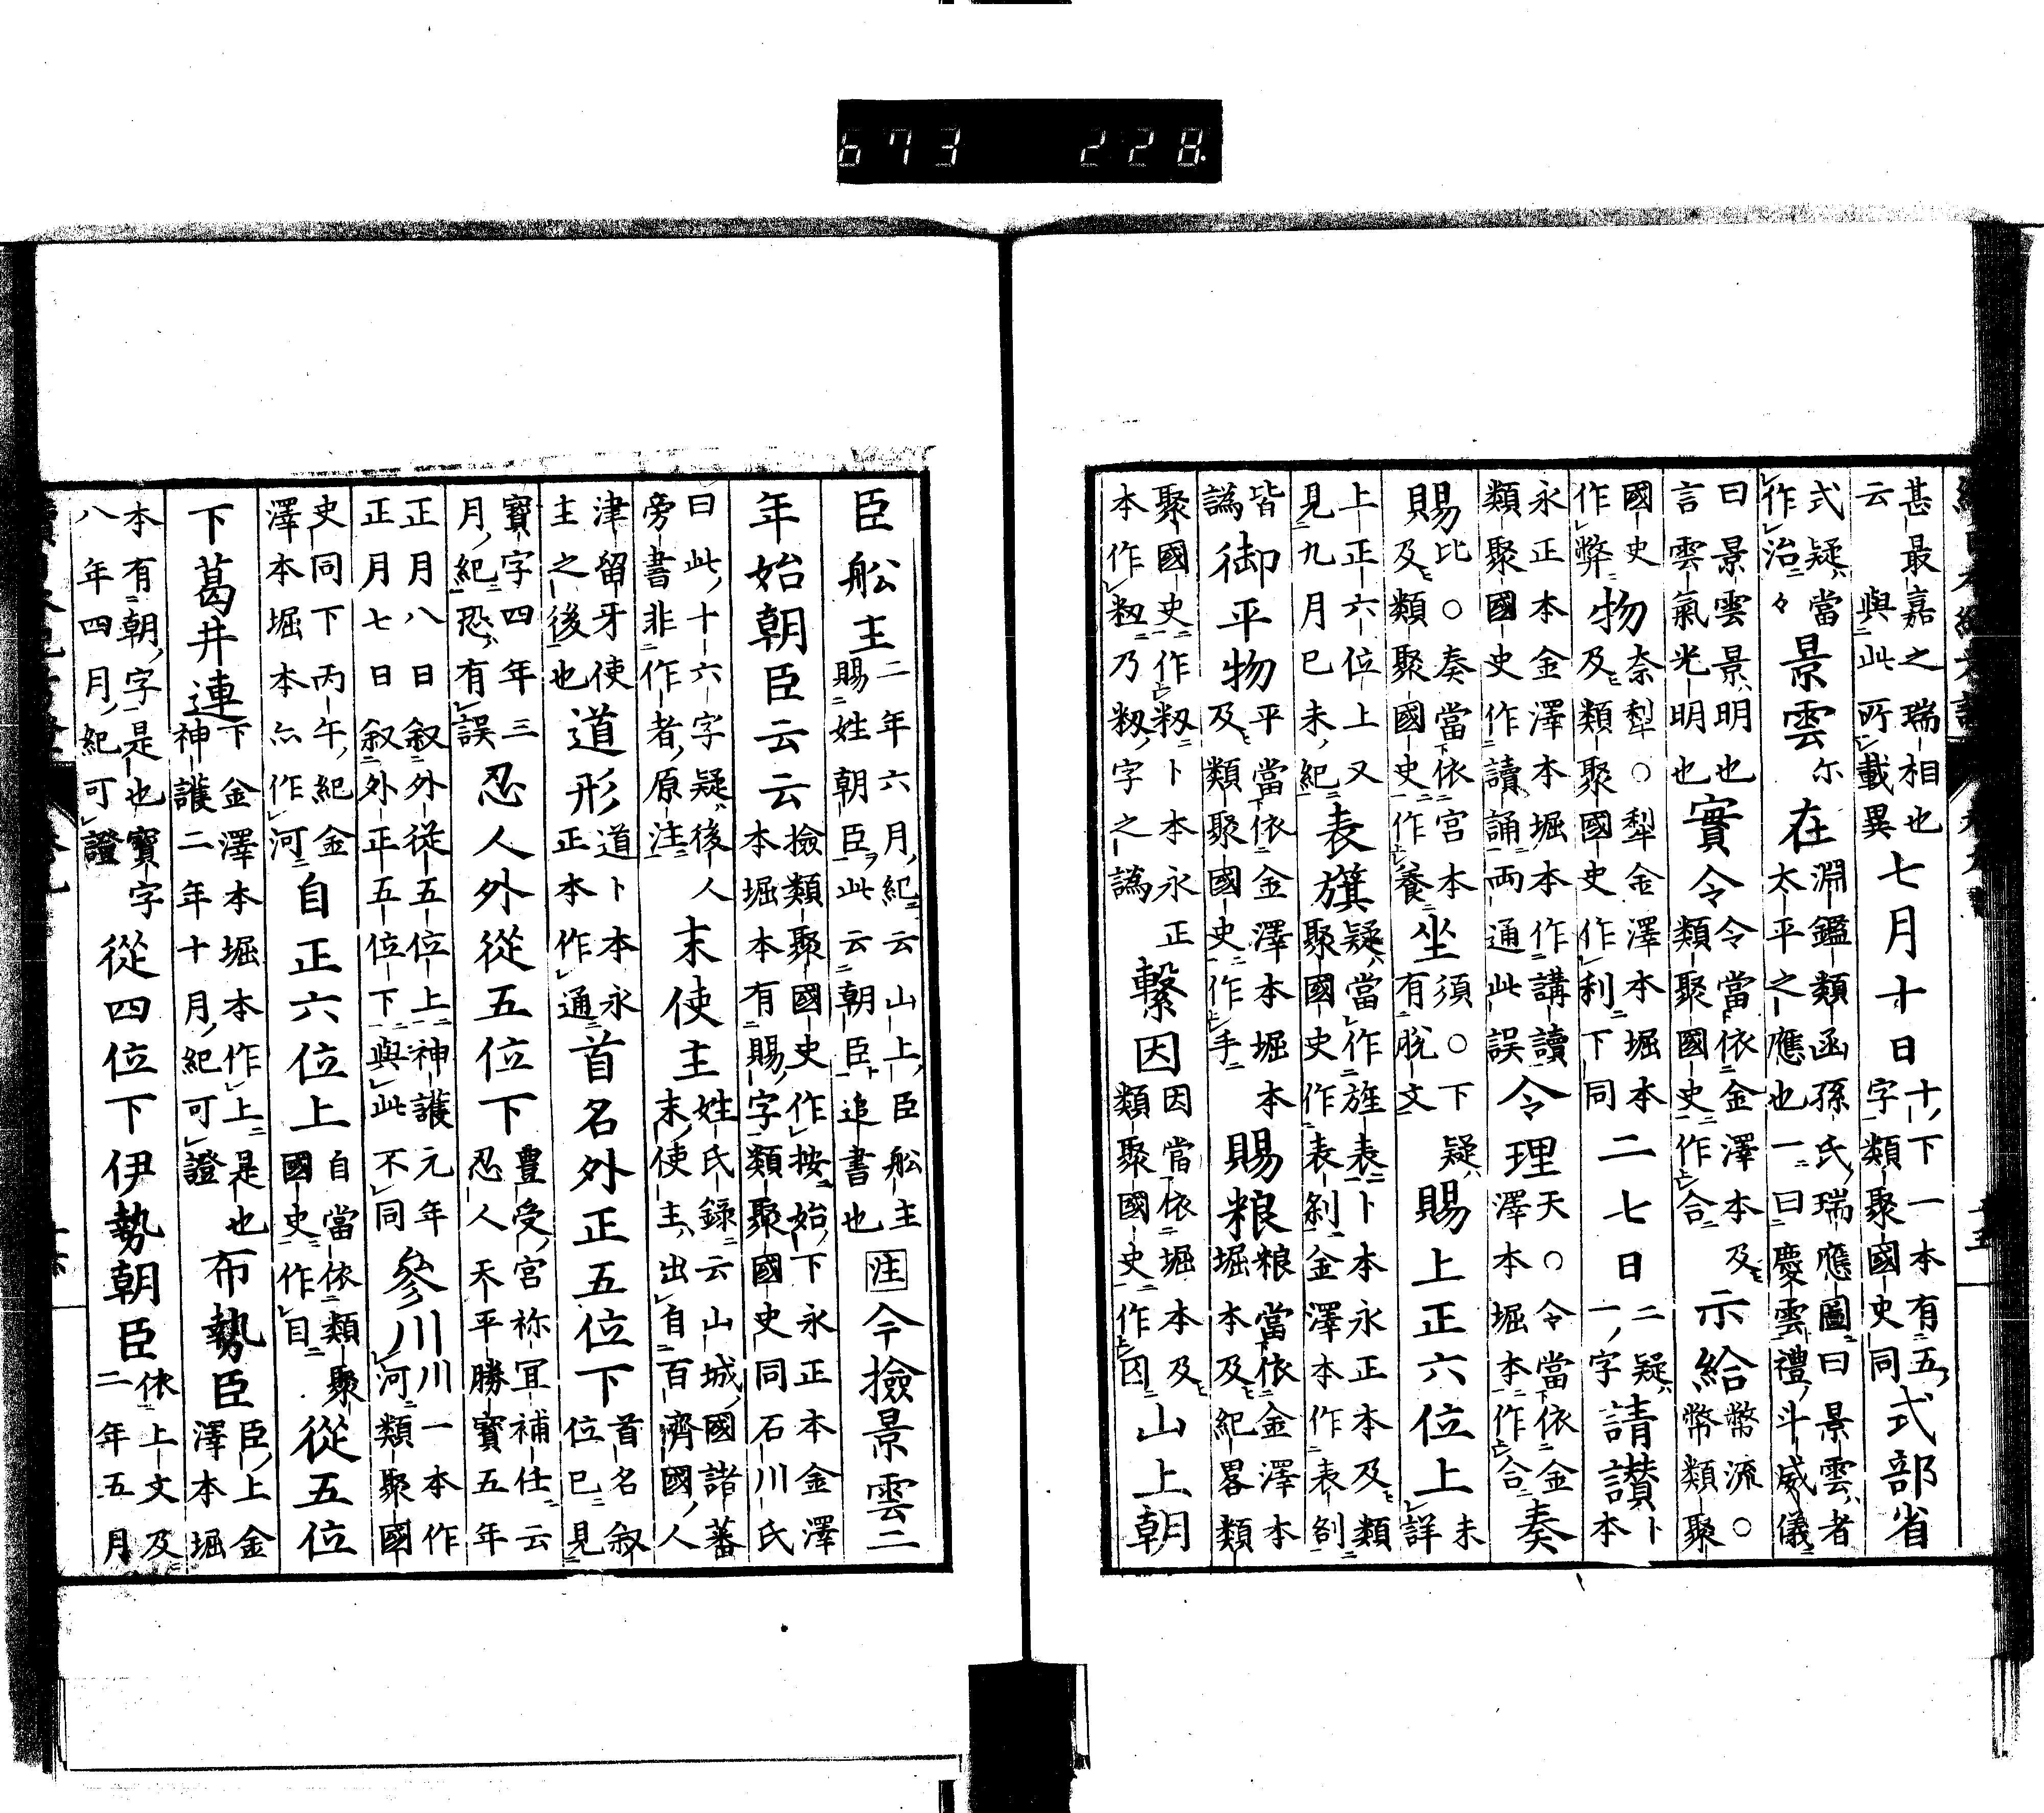 673 228.
甚最嘉之瑞相也云與此所載異七月十日十下一本有五字類聚國史同式部省
式疑當作治々景雲尓在淵鑑類函孫氏瑞應圖曰景雲者太平之應也一曰慶雲禮斗威儀
曰景雲景明也言雲氣光明也實令令當依金澤本及類聚國史作合示給幣流○幣類聚
國史作弊物奈犁○犁金澤本堀本及類聚國史作利下同二七日二疑一字請讃卜本
永正本金澤本堀本作講讀類聚國史作讀誦兩通此誤令理天○令當依金澤本堀本作合奏
賜比○奏當依宮本及類聚國史作養坐須○下疑有脫文賜上正六位上未詳
上正六位上又見九月已未紀表旗疑當作旌表卜本永正本及類聚國史作表剝金澤本作表刽
皆譌御平物平當依金澤本堀本及類聚國史作手賜粮粮當依金澤本堀本及紀畧類
聚國史作籾卜本永正本作籾乃籾字之譌繫因因當依堀本及類聚國史作囚山上朝
臣舩主二年六月紀云山上臣舩主賜姓朝臣此云朝臣追書也注今撿景雲二
年始朝臣云云撿類聚國史作按始下永正本金澤本堀本有賜字類聚國史同石川氏
曰此十六字疑後人旁書非作者原注末使主姓氏録云山城國諸蕃末使主出自百濟國人
津留牙使主之後也道形道卜本永正本作通首名外正五位下首名叙位已見
寶字四年三月紀恐有誤忍人外從五位下豊受宮祢冝補任云忍人天平勝寶五年
正月八日叙外從五位上神護元年正月七日叙外正五位下與此不同參川川一本作河類聚國
史同下丙午紀金澤本堀本亦作河自正六位上自當依類聚國史作目從五位
下葛井連下金澤本堀本作上是也神護二年十月紀可證布勢臣臣上金澤本堀
本有朝字是也寶字八年四月紀可證從四位下伊勢朝臣依上文及二年五月